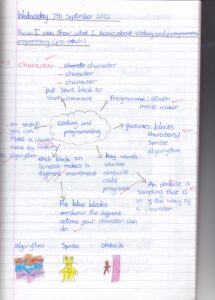 Wednesday 7th September 2022
Focus: I can show what I know about coding and programming
programming (pre-batch)
character - character
character
character
put start block to
start movement
Programme: 
movie maker
coding and
programming
features: blocks
characters/
Sprite
algorythm
on 
you can
Make a 
move by making
algorythm
each block on
Scratch makes a
different movement
key words:
obstacle
code
program
An obstacle is
something that is
in the way of
a charater
The blue blocks
are the different
actions your charater can
do
algorythm
Sprite
obstacle